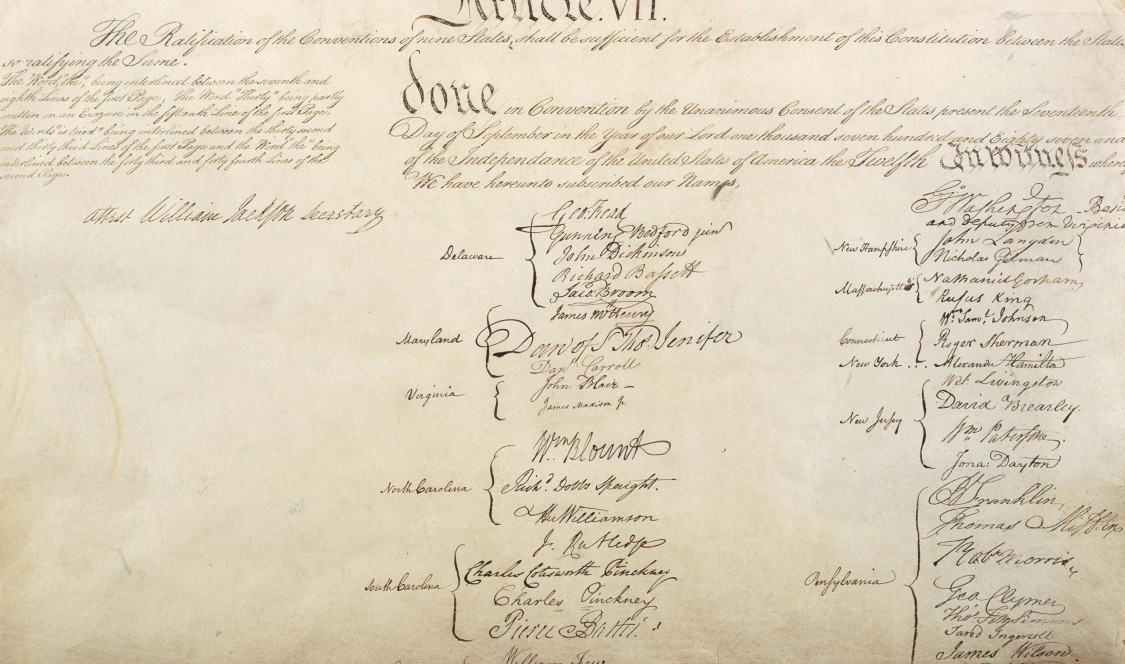 Article. VII.
The Ratification of the Conventions of nine States, shall be sufficient for the Establishment of this Constitution between the States
so ratifying the Same.
The Word, "the", being interlined between the seventh and
eighth Lines of the first Page, The Word "Thirty" being partly
written on an Erazure in the fifteenth Line of the first Page,
The Words "is tried" being interlined between the thirty second
and thirty third Lines of the first Page and the Word "the" being
interlined between the forty third and forty fourth Lines of the
second Page.
Attest William Jackson Secretary
done in Convention by the Unanimous Consent of the States present the Seventeenth
Day of September in the Year of our Lord one thousand seven hundred and Eighty seven and
of the Independance of the United States of America the Twelfth In Witness where
We have hereunto subscribed our Names,
Delaware
Geo: Read
Gunning Bedford jun
John Dickinson
Richard Bassett
Jaco: Broom
Maryland
James McHenry
Dan of St Thos. Jenifer
Danl Carroll
Virginia
John Blair —
James Madison Jr.
North Carolina
Wm Blount
Richd. Dobbs Spaight.
Hu Williamson
South Carolina
J. Rutledge
Charles Cotesworth Pinckney
Charles Pinckney
Pierce Butler.
William Few
Go. Washington
and deputy from Virginia
New Hampshire
John Langdon
Nicholas Gilman
Massachusetts
Nathaniel Gorham
Rufus King
Connecticut
Wm. Saml. Johnson
Roger Sherman
New York . . .
Alexander Hamilton
New Jersey
Wil: Livingston
David Brearley.
Wm Paterson.
Jona: Dayton
Pensylvania
B Franklin
Thomas Mifflin
Robt Morris
Geo. Clymer
Thos. FitzSimons
Jared Ingersoll
James Wilson.